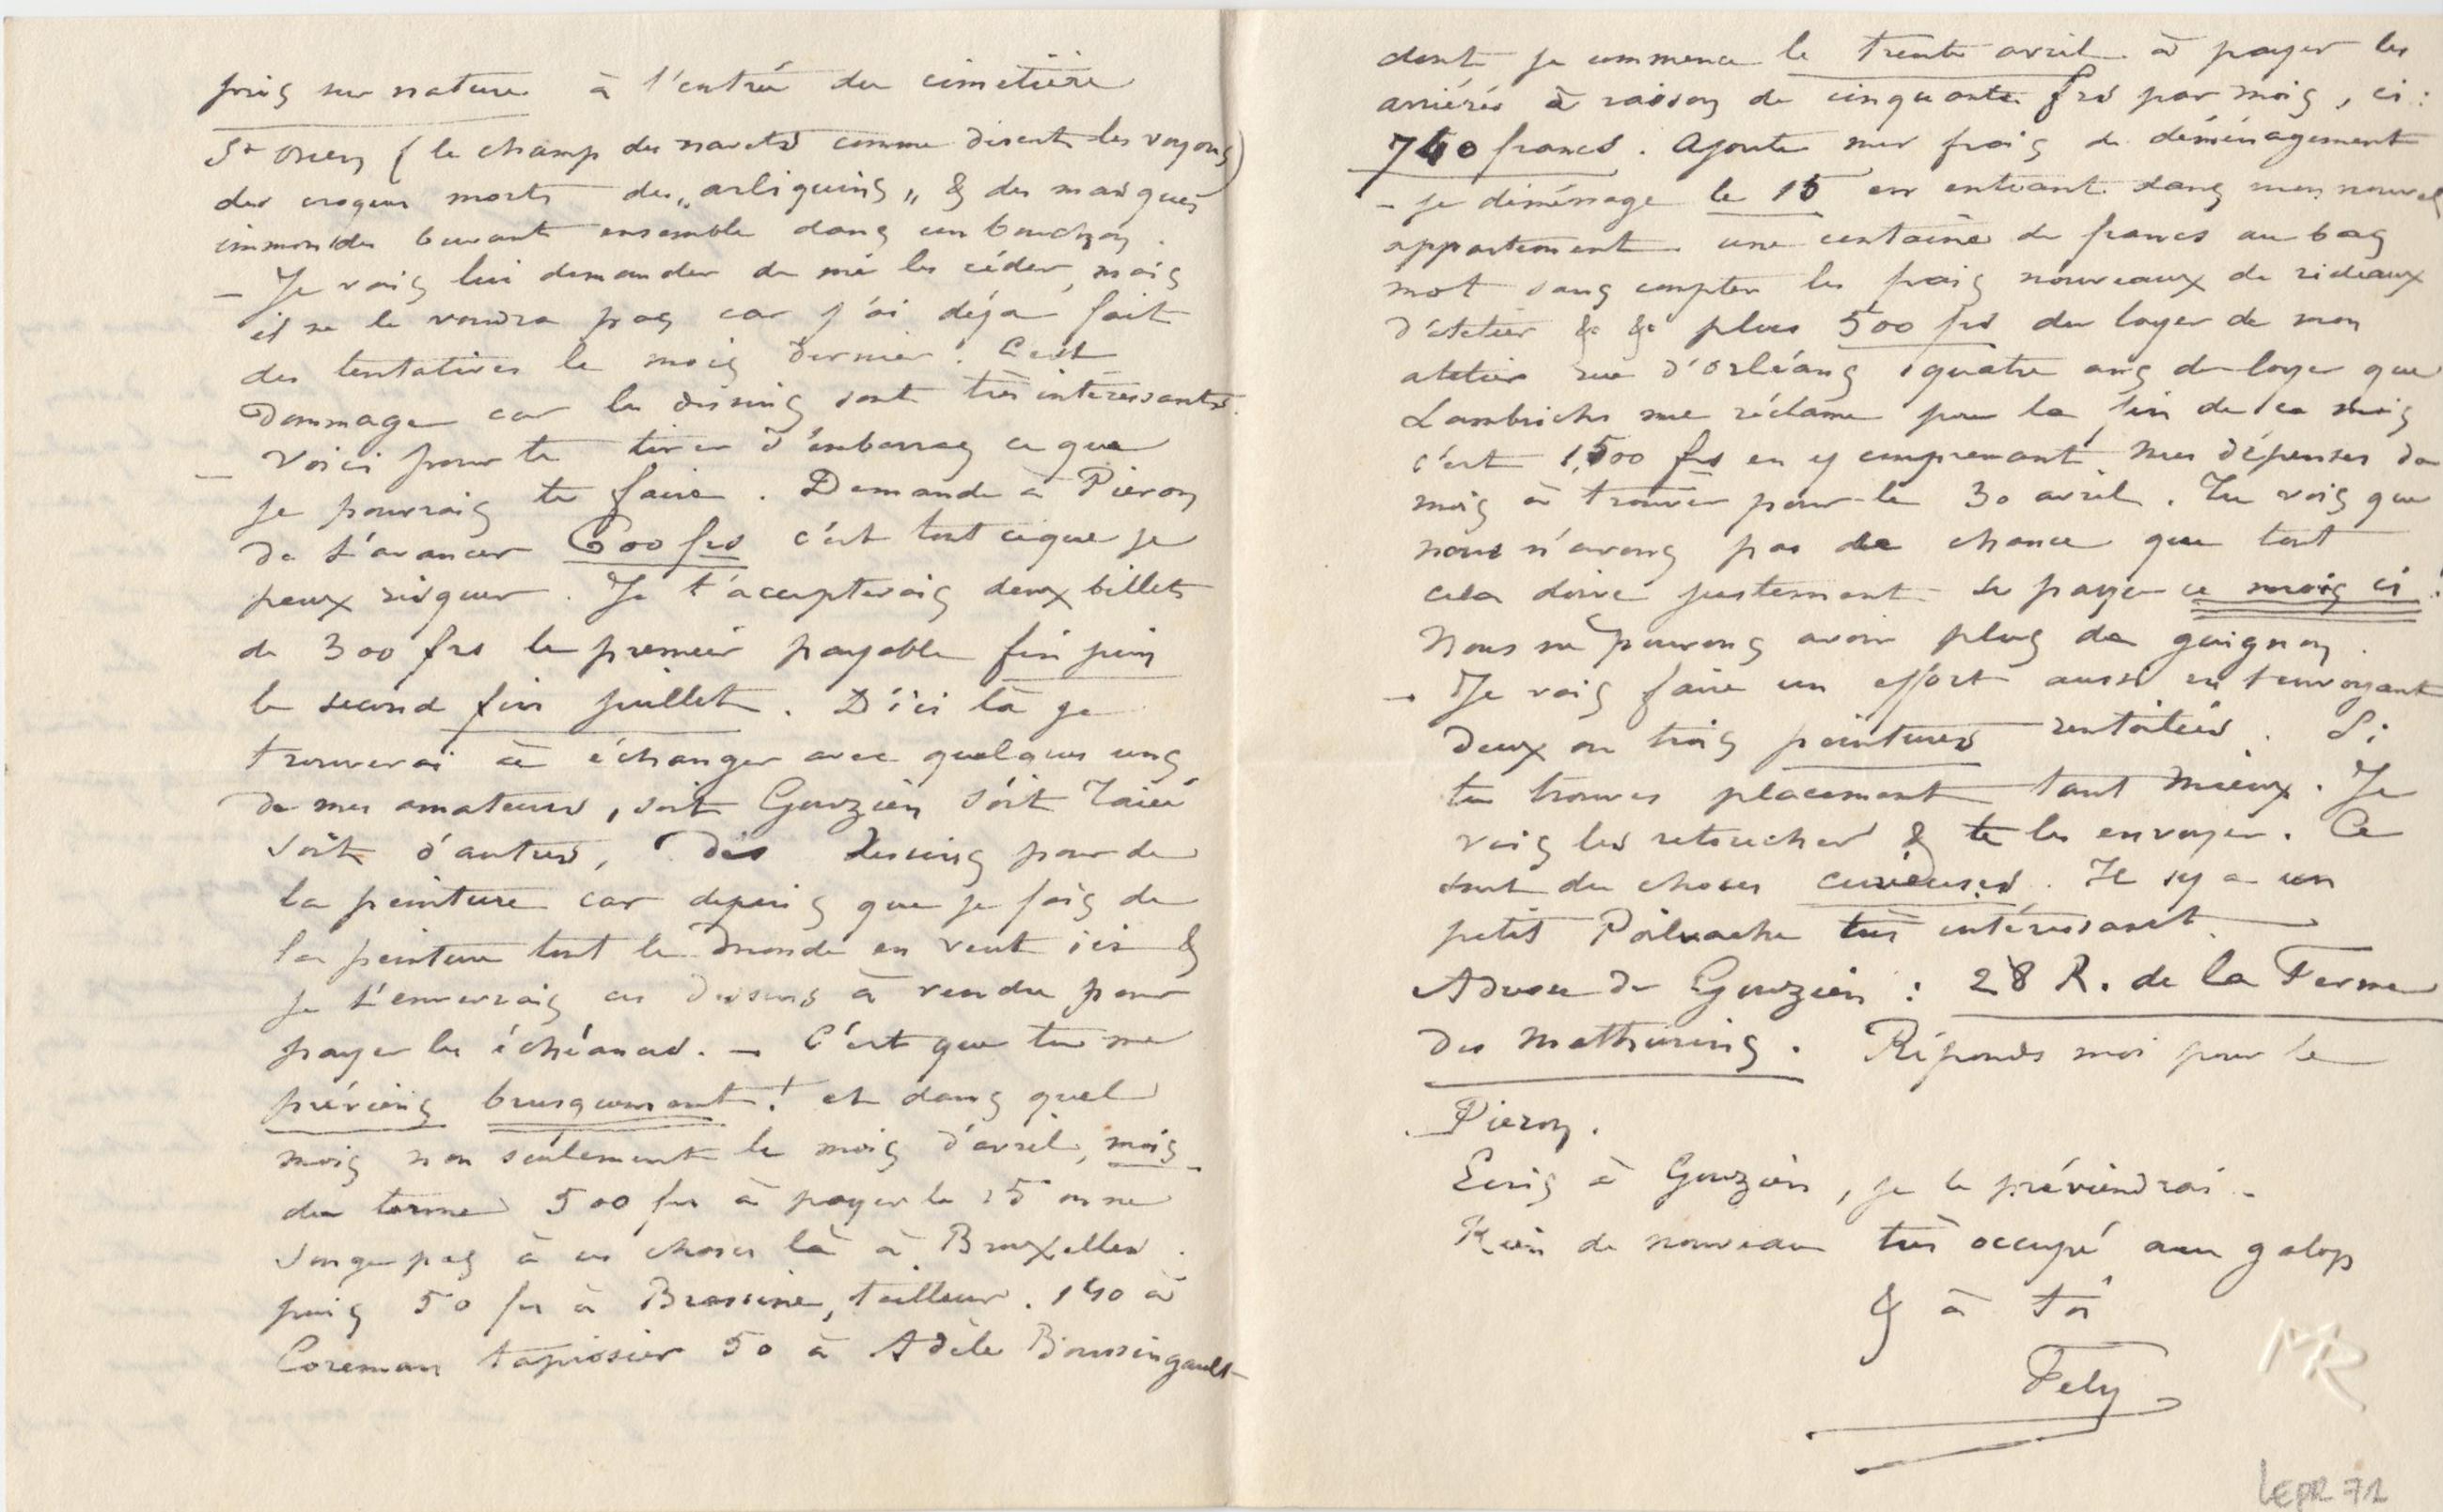 pris sur nature à l'entrée du cimetière
St Ouen (le champ des navets comme disent les voyous)
des croques morts des „arliquins„ & des masques
immondes buvant ensemble dans un bouchon.
— Je vais lui demander de me les céder, mais
il ne le voudra pas car j'ai déja fait
des tentatives le mois dernier. C'est
dommage car les dessins sont très intéressants.
— Voici pour te tirer d'embarras ce que
je pourrais te faire. Demande à Piéron
de t'avancer 600 frs c'est tout ce que je
peux risquer. Je t'accepterais deux billets
de 300 frs le premier payable fin juin
le second fin juillet. D'ici là je
trouverai à échanger avec quelques uns
de mes amateurs, soit Gouzien soit Taiée
soit d'autres, des dessins pour de
la peinture car depuis que je fais de
la peinture tout le monde en veut ici &
je t'enverrais ces dessins à vendre pour
payer les échéances. — C'est que tu me
préviens brusquement! et dans quel
mois non seulement le mois d'avril, mais
du terme 500 frs à payer le 15 on ne
songe pas à ces choses là à Bruxelles.
puis 50 frs à Brassine, tailleur. 140 à
Coreman tapissier 50 à Adèle Boussingault
dont je commence le trente avril à payer les
arriérés à raison de cinquante frs par mois, ci:
740 francs. Ajoute mes frais de déménagement
— je déménage le 15 en entrant dans mon nouvel
appartement une centaine de francs au bas
mot sans compter les frais nouveaux de rideaux
d'atelier &c &c plus 500 frs du loyer de mon
atelier rue d'Orléans, quatre ans de loyer que
Lambrichs me réclame pour la fin de ce mois
c'est 1,500 frs en y comprenant mes dépenses du
mois à trouver pour le 30 avril. Tu vois que
nous n'avons pas de chance que tout
cela doive justement se payer ce mois ci!
Nous ne pouvons avoir plus de guignon.
— Je vais faire un effort aussi en t'envoyant
deux ou trois peintures rentoilées. Si
tu trouves placement tant mieux. Je
vais les retoucher & te les envoyer. Ce
sont des choses curieuses. Il y a un
petit Poilvache très intéressant. —
Adresse de Gouzien: 28 R. de la Ferme
des Mathurins. Réponds moi pour le
Piéron.
Ecris à Gouzien, je le préviendrai.
Rien de nouveau très occupé au galop
& à toi
Fély
MR
LEPR 71